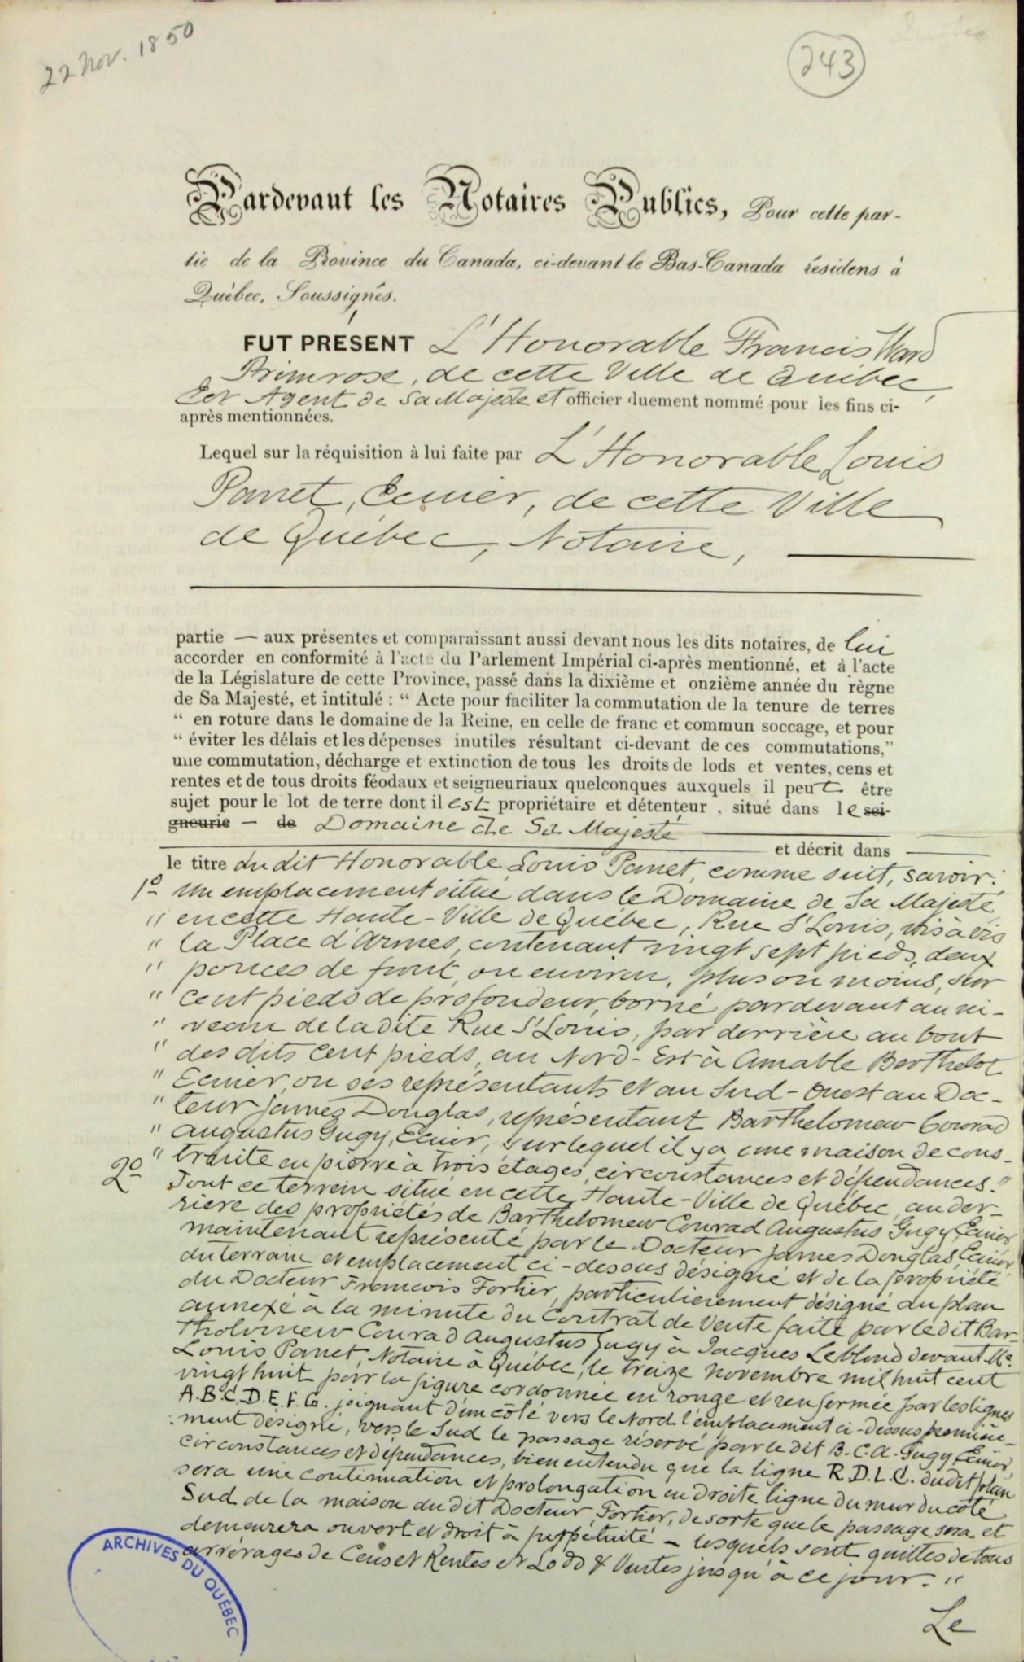 22 Nov. 1850
243
Pardevant les Notaires Publics, Pour cette par-
tie de la Province du Canada, ci-devant le Bas-Canada résidens à
Québec, Soussignés.
FUT PRÉSENT L'Honorable Francis Ward
Primrose, de cette Ville de Québec,
Ecr Agent de Sa Majesté et officier duement nommé pour les fins ci-
après mentionnées.
Lequel sur la réquisition à lui faite par L'Honorable Louis
Panet, Ecuier, de cette Ville
de Québec, Notaire,
partie — aux présentes et comparaissant aussi devant nous les dits notaires, de lui
accorder en conformité à l'acte du Parlement Impérial ci-après mentionné, et à l'acte
de la Législature de cette Province, passé dans la dixième et onzième année du règne
de Sa Majesté, et intitulé : “ Acte pour faciliter la commutation de la tenure de terres
“ en roture dans le domaine de la Reine, en celle de franc et commun soccage, et pour
“ éviter les délais et les dépenses inutiles résultant ci-devant de ces commutations,”
une commutation, décharge et extinction de tous les droits de lods et ventes, cens et
rentes et de tous droits féodaux et seigneuriaux quelconques auxquels il peut être
sujet pour le lot de terre dont il est propriétaire et détenteur , situé dans le sei-
gneurie — de Domaine de Sa Majesté
et décrit dans
le titre du dit Honorable Louis Panet, comme suit, savoir:
1o Un emplacement situé dans le Domaine de Sa Majesté
" en cette Haute-Ville de Québec, Rue St Louis, vis à vis
" la Place d'Armes, contenant vingt sept pieds, deux
" pouces de front, ou environ, plus ou moins, sur
" cent pieds de profondeur, borné pardevant au ni-
" veau de la dite Rue St Louis, par derrière au bout
" des dits cent pieds, au Nord-Est à Amable Berthelot
" Ecuier, ou ses représentants et au Sud-Ouest au Doc-
" teur James Douglas, représentant Barthelomew Conrad
" Augustus Gugy, Ecuier, sur lequel il y a une maison de cons-
" truite en pierre à trois étages, circonstances et dépendances."
2o Tout ce terrein situé en cette Haute-Ville de Québec, au der-
rière des propriétés de Barthelomew Conrad Augustus Gugy, Ecuier
maintenant représenté par le Docteur James Douglas, Ecuier
du terrain et emplacement ci-dessus désigné et de la propriété
du Docteur Francois Fortier, particulierement désigné au plan
annexé à la minute du Contrat de Vente faite par le dit Bar-
tholomew Conrad Augustus Gugy à Jacques Leblond devant Me
Louis Panet, Notaire à Québec, le treize novembre mil huit cent
vingt huit par la figure cordonnée en rouge et renfermée par les lignes
A.B.C.D.E.F.G. joignant d'un côté vers le Nord l'emplacement ci-dessus premiere-
ment désigné, vers le Sud le passage réservé par le dit B.C.A. Gugy, Ecuier,
circonstances et dépendances, bien entendu que la ligne R.D.L.C. du dit plan
sera une continuation et prolongation en droite ligne du mur du côté
Sud de la maison du dit Docteur Fortier, de sorte que le passage sera et
demeurera ouvert et droit à perpétuité — lesquels sont quittes de tous
arrérages de Cens et Rentes et Lods & Ventes jusqu'à ce jour."
Le
ARCHIVES DU QUÉBEC